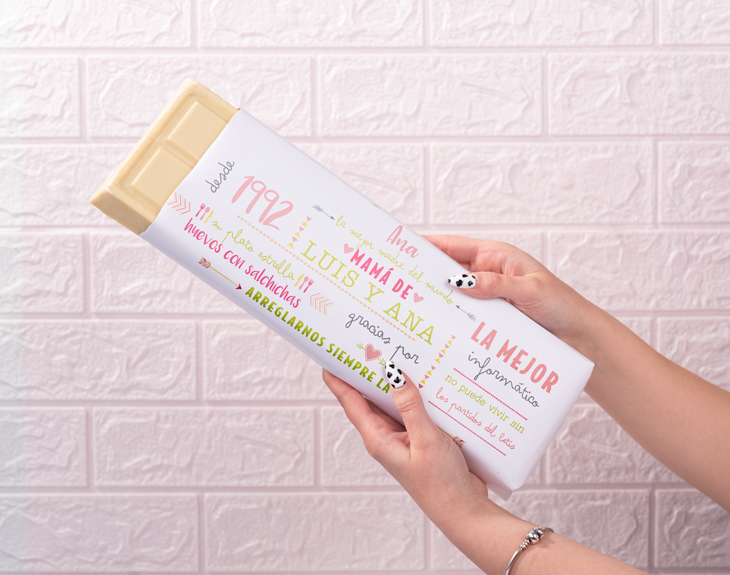 desde
1992
su plato estrella
huevos con salchichas
Ana
la mejor madre del mundo
MAMÁ DE
LUIS Y ANA
gracias por
ARREGLARNOS SIEMPRE LA
LA MEJOR
informático
no puede vivir sin
los partidos del